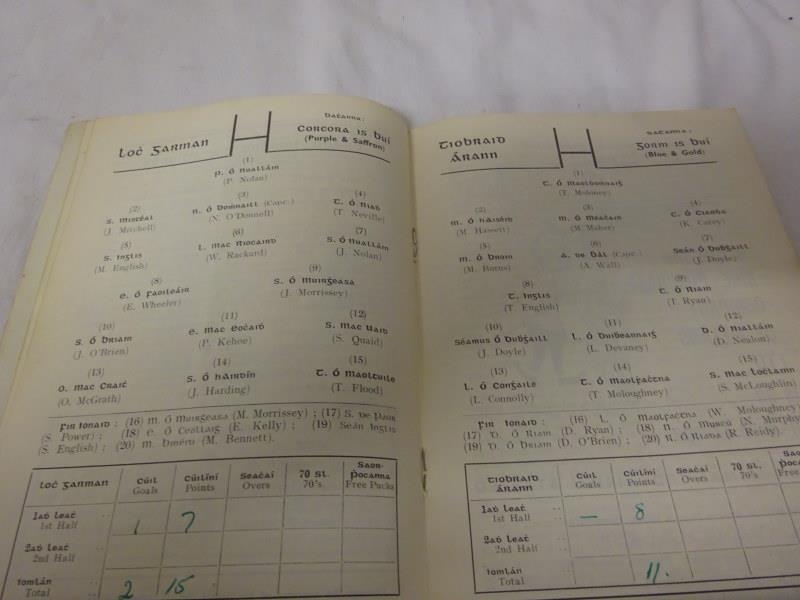 Loċ Ȝarman
Daṫanna:
Corcora is buí
(Purple & Saffron)
(1)
P. Ó Nualláin
(P. Nolan)
(2) (3) (4)
S. Mistéal n. Ó Doṁnaill (Capt.) T. Ó Niaḋ
(J. Mitchell) (N. O'Donnell) (T. Neville)
(5) (6) (7)
S. Inglis L. Mac Riocaird S. Ó Nualláin
(M. English) (W. Rackard) (J. Nolan)
(8) (9)
e. Ó Faoileáin S. Ó Muirġeasa
(E. Wheeler) (J. Morrissey)
(10) (11) (12)
S. Ó Briain e. Mac Eoċaiḋ S. Mac Uaid
(J. O'Brien) (P. Kehoe) (S. Quaid)
(13) (14) (15)
O. Mac Craiṫ S. Ó hAirdín T. Ó Maoltuile
(O. McGrath) (J. Harding) (T. Flood)
Fir Ionaid: (16) m. Ó Muirġeasa (M. Morrissey); (17) S. de Paor
(S. Power); (18) e. Ó Ceallaiġ (E. Kelly); (19) Seán Inglis
(S. English); (20) m. (M. Bennett).
Loċ Ȝarman Cúil Goals Cúilíní Points Seaċaí Overs 70 Sl. 70's Saor-ṗocanna Free Pucks
1aḋ Leaṫ 1st Half 1 7
2aḋ Leaṫ 2nd Half
Iomlán Total 2 15
Tiobraid Árann
Daṫanna:
Gorm is buí
(Blue & Gold)
(1)
T. Ó Maoldoṁnaiġ
(T. Moloney)
(2) (3) (4)
m. Ó hAiséid m. Ó Meaċair C. Ó Ciarḋa
(M. Hassett) (M. Maher) (K. Carey)
(5) (6) (7)
m. Ó Broin A. de Bál (Capt.) Seán Ó Duḃġaill
(M. Burns) (A. Wall) (J. Doyle)
(8) (9)
T. Inglis T. Ó Riain
(T. English) (T. Ryan)
(10) (11) (12)
Séamus Ó Duḃġaill L. Ó Duiḃeannaiġ D. Ó Nialláin
(J. Doyle) (L. Devaney) (D. Nealon)
(13) (14) (15)
L. Ó Conġaile T. Ó Maolṗaċtna S. Mac Loċlainn
(L. Connolly) (T. Moloughney) (S. McLoughlin)
Fir Ionaid: (16) L. Ó Maolṗaċtna (W. Moloughney)
(17) D. Ó Riain (D. Ryan); (18) n. Ó Murcú (N. Murphy
(19) D. Ó Briain (D. O'Brien); (20) R. Ó Riada (R. Reidy).
Tiobraid Árann Cúil Goals Cúilíní Points Seaċaí Overs 70 Sl. 70's
1aḋ Leaṫ 1st Half — 8
2aḋ Leaṫ 2nd Half
Iomlán Total 11.